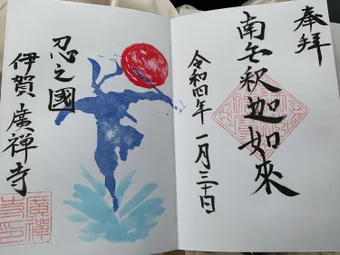 奉拝
南無釈迦如來
令和四年 一月三十日
忍之國
伊賀 廣禅寺
廣禪
寺印